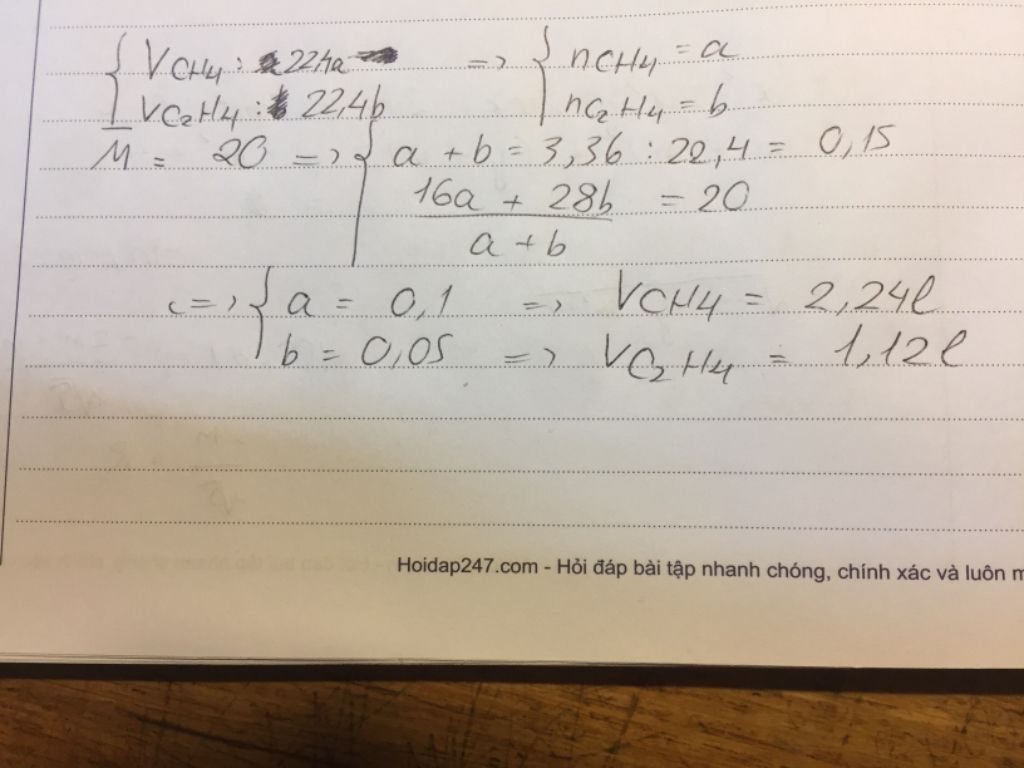 { VCH4 : 22,4a => { nCH4 = a
VC2H4 : 22,4b nC2H4 = b
M = 20 => { a + b = 3,36 : 22,4 = 0,15
16a + 28b = 20
a + b
<=> { a = 0,1 => VCH4 = 2,24l
b = 0,05 => VC2H4 = 1,12l
Hoidap247.com - Hỏi đáp bài tập nhanh chóng, chính xác và luôn m